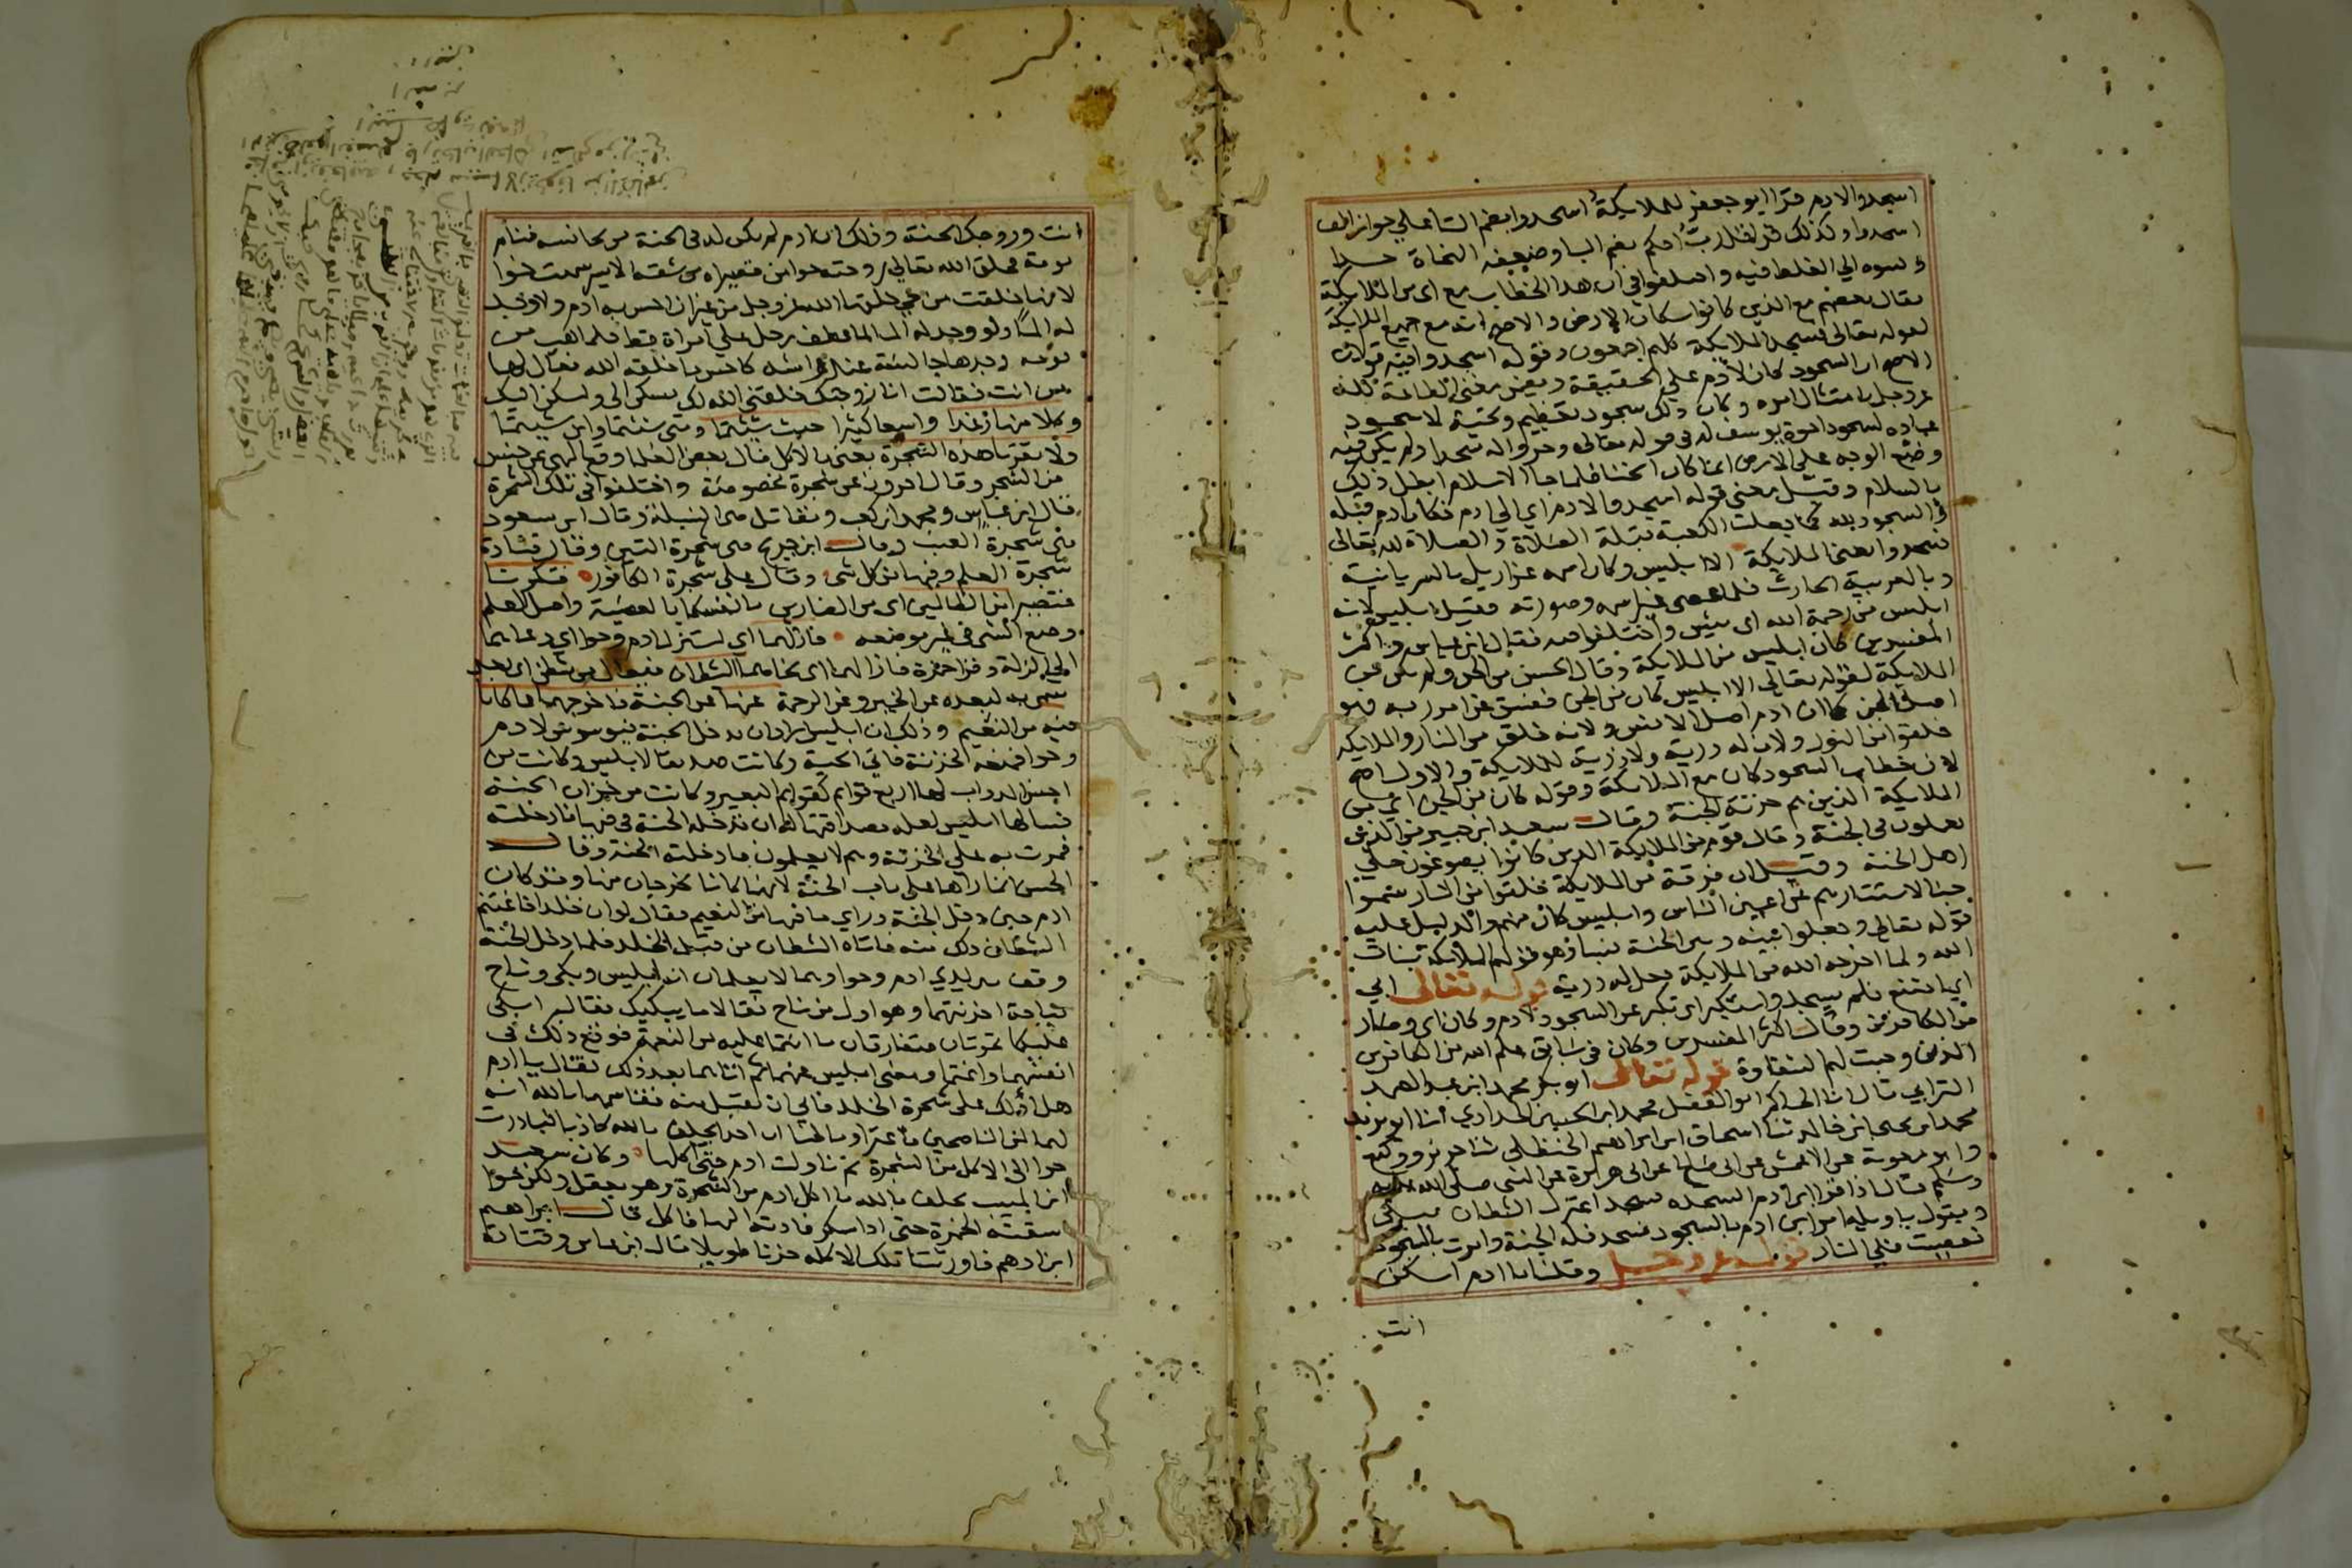 اسجدوا لادم قرا ابو جعفر للملايكة اسجدوا بضم التا علي جوار الف
اسجدوا وكذلك قرا قل رب احكم بضم البا وضعفه النحاة جدا
ونسبوه الي الغلط فيه واختلفوا في ان هذا الخطاب مع اي من الملايكة
فقال بعضهم مع الذين كانوا سكان الارض والاصح انه مع جميع الملايكة
لقوله تعالى فسجد الملايكة كلهم اجمعون وقوله اسجدوا فيه قولان
الاصح ان السجود كان لادم علي الحقيقة وتضمن معنى الطاعة لله
عز وجل بامتثال امره وكان ذلك سجود تعظيم وتحية لا سجود
عباده كسجود اخوة يوسف له في قوله تعالى وخروا له سجدا ولم يكن فيه
وضع الوجه علي الارض انما كان انحنا فلما جا الاسلام ابطل ذلك
بالسلام وقيل معنى قوله اسجدوا لادم اي الي ادم فكان ادم قبلة
والسجود لله كما جعلت الكعبة قبلة الصلاة والصلاة لله تعالى
فسجدوا يعني الملايكة الا ابليس وكان اسمه عزازيل بالسريانية
وبالعربية الحارث فلما عصى غير اسمه وصورته فقيل ابليس لانه
ابلس من رحمة الله اي يئس واختلفوا فيه فقال ابن عباس واكثر
المفسرين كان ابليس من الملايكة وقال الحسن من الجن ولم يكن من
الملايكة لقوله تعالى الا ابليس كان من الجن ففسق عن امر ربه فهو
اصل الجن كما ان ادم اصل الانس ولانه خلق من النار والملايكة
خلقوا من النور ولان له ذرية ولا ذرية للملايكة والاول اصح
لان خطاب السجود كان مع الملايكة وقوله كان من الجن اي من
الملايكة الذين هم خزنة الجنة وقال سعيد ابن جبير من الذين
يعملون في الجنة وقال قوم من الملايكة الذين كانوا يصوغون حلي
اهل الجنة وقيل ان فرقة من الملايكة خلقوا من النار سموا
جنا لاستتارهم عن اعين الناس وابليس كان منهم والدليل عليه
قوله تعالى وجعلوا بينه وبين الجنة نسبا وهو قولهم الملايكة بنات
الله ولما اخرجه الله من الملايكة جعل له ذرية قوله تعالى ابي
اي امتنع فلم يسجد واستكبر اي تكبر عن السجود لادم وكان اي وصار
من الكافرين وقال اكثر المفسرين وكان في سابق علم الله من الكافرين
الذين وجبت لهم الشقاوة قوله تعالى ابو بكر محمد ابن عبد الصمد
الترابي قال انا الحاكم ابو الفضل محمد ابن الحسين الحدادي انا ابو يزيد
محمد ابن يحيى ابن خالد ثنا اسحاق ابن ابراهيم الحنظلي ثنا جرير ووكيع
وابو معوية عن الاعمش عن ابي صالح عن ابي هريرة عن النبي صلى الله عليه
وسلم قال اذا قرا ابن ادم السجده سجد اعتزل الشيطان يبكي
ويقول يا ويله امر ابن ادم بالسجود فسجد فله الجنة وامرت بالسجود
فعصيت فلي النار قوله عز وجل وقلنا يا ادم اسكن
انت
انت وزوجك الجنة وذلك ان ادم لم يكن له في الجنة من يجانسه فنام
نومة فخلق الله تعالى زوجته حوا من قصيراه من شقه الايسر سميت حوا
لانها خلقت من حي خلقها الله عز وجل من غير ان احس به ادم ولا وجد
له الما ولو وجد له الما لما عطف رجل علي امراة قط فلما اهب من
نومه وجدها جالسة عند راسه كاحسن ما خلقه الله فقال لها
من انت فقالت انا زوجتك خلقني الله لك تسكن الي واسكن اليك
وكلا منها رغدا واسعا كثيرا حيث شيتما ومتى شئتما واين شيتما
ولا تقربا هذه الشجرة يعني بالاكل قال بعض العلما وقع النهي عن جنس
من الشجر وقال اخرون عن شجرة مخصوصة واختلفوا في تلك الشجرة
قال ابن عباس ومحمد ابن كعب ومقاتل هي السنبلة وقال ابن مسعود
هي شجرة العنب وقال ابن جريج هي شجرة التين وقال قتادة
شجرة العلم وفيها من كل شي وقال علي شجرة الكافور فتكونا
فتصيرا من الظالمين اي من الضارين بانفسكما بالمعصية واصل الظلم
وضع الشي في غير موضعه فازلهما اي استزل ادم وحوا اي دعاهما
الي الزلة وقرا حمزة فازالهما اي نحاهما الشيطان فيعال من شطن اي بعد
سمي به لبعده عن الخير وعن الرحمة عنها عن الجنة فاخرجهما مما كانا
فيه من النعيم وذلك ان ابليس اراد ان يدخل الجنة ليوسوس لادم
وحوا فمنعه الخزنة فاتي الحية وكانت صديقا لابليس وكانت من
احسن الدواب لها اربع قوايم كقوايم البعير وكانت من خزان الجنة
فسالها ابليس ان تدخله الجنة في فيها فادخلته
فمرت به علي الخزنة وهم لا يعلمون فادخلته الجنة وقال
الحسن انما راهما علي باب الجنة لانهما كانا يخرجان منها وقد كان
ادم حين دخل الجنة وراي ما فيها من النعيم فقال لو ان خلدا فاغتنم
الشيطان ذلك منه فاتاه الشيطان من قبل الخلد فلما دخل الجنة
وقف بين يدي ادم وحوا وهما لا يعلمان انه ابليس وبكى وناح
نياحة احزنتهما وهو اول من ناح فقالا ما يبكيك فقال ابكي
عليكما تموتان فتفارقان ما انتما عليه من النعمة فوقع ذلك في
انفسهما واغتما ومضى ابليس عنهما ثم اتاهما بعد ذلك فقال يا ادم
هل ادلك علي شجرة الخلد فابي ان يقبل منه فقاسمهما بالله انه
لهما لمن الناصحين فاغترا وما ظنا ان احد يحلف بالله كاذبا فبادرت
حوا الي الاكل من الشجرة ثم ناولت ادم حتى اكلها وكان سعيد
ابن المسيب يحلف بالله ما اكل ادم من الشجرة وهو يعقل ولكن حوا
سقته الخمرة حتى اذا سكر قادته اليها فاكل قال ابراهيم
ابن ادهم فاورثتنا تلك الاكله حزنا طويلا قال ابن عباس وقتادة